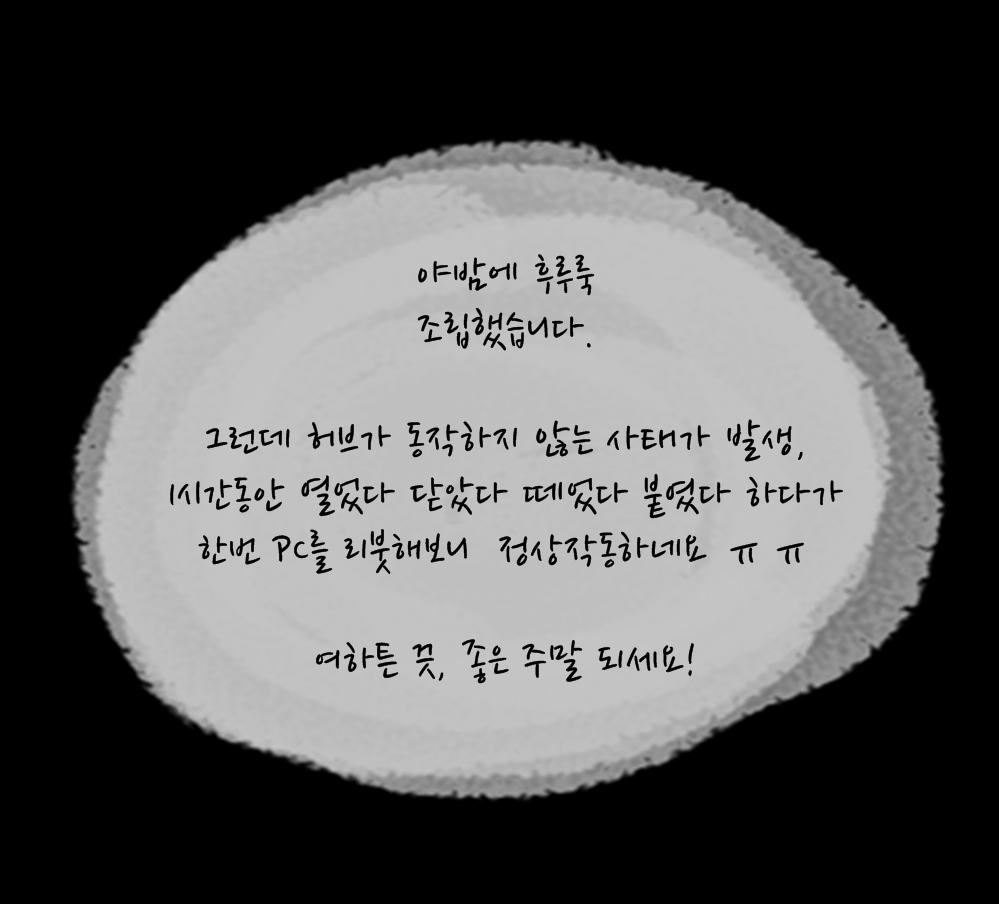 야밤에 후루룩
조립했습니다.
그런데 허브가 동작하지 않는 사태가 발생,
1시간동안 열었다 닫았다 떼었다 붙였다 하다가
한번 PC를 리붓해보니 정상작동하네요 ㅠ ㅠ
여하튼 끗, 좋은 주말 되세요!